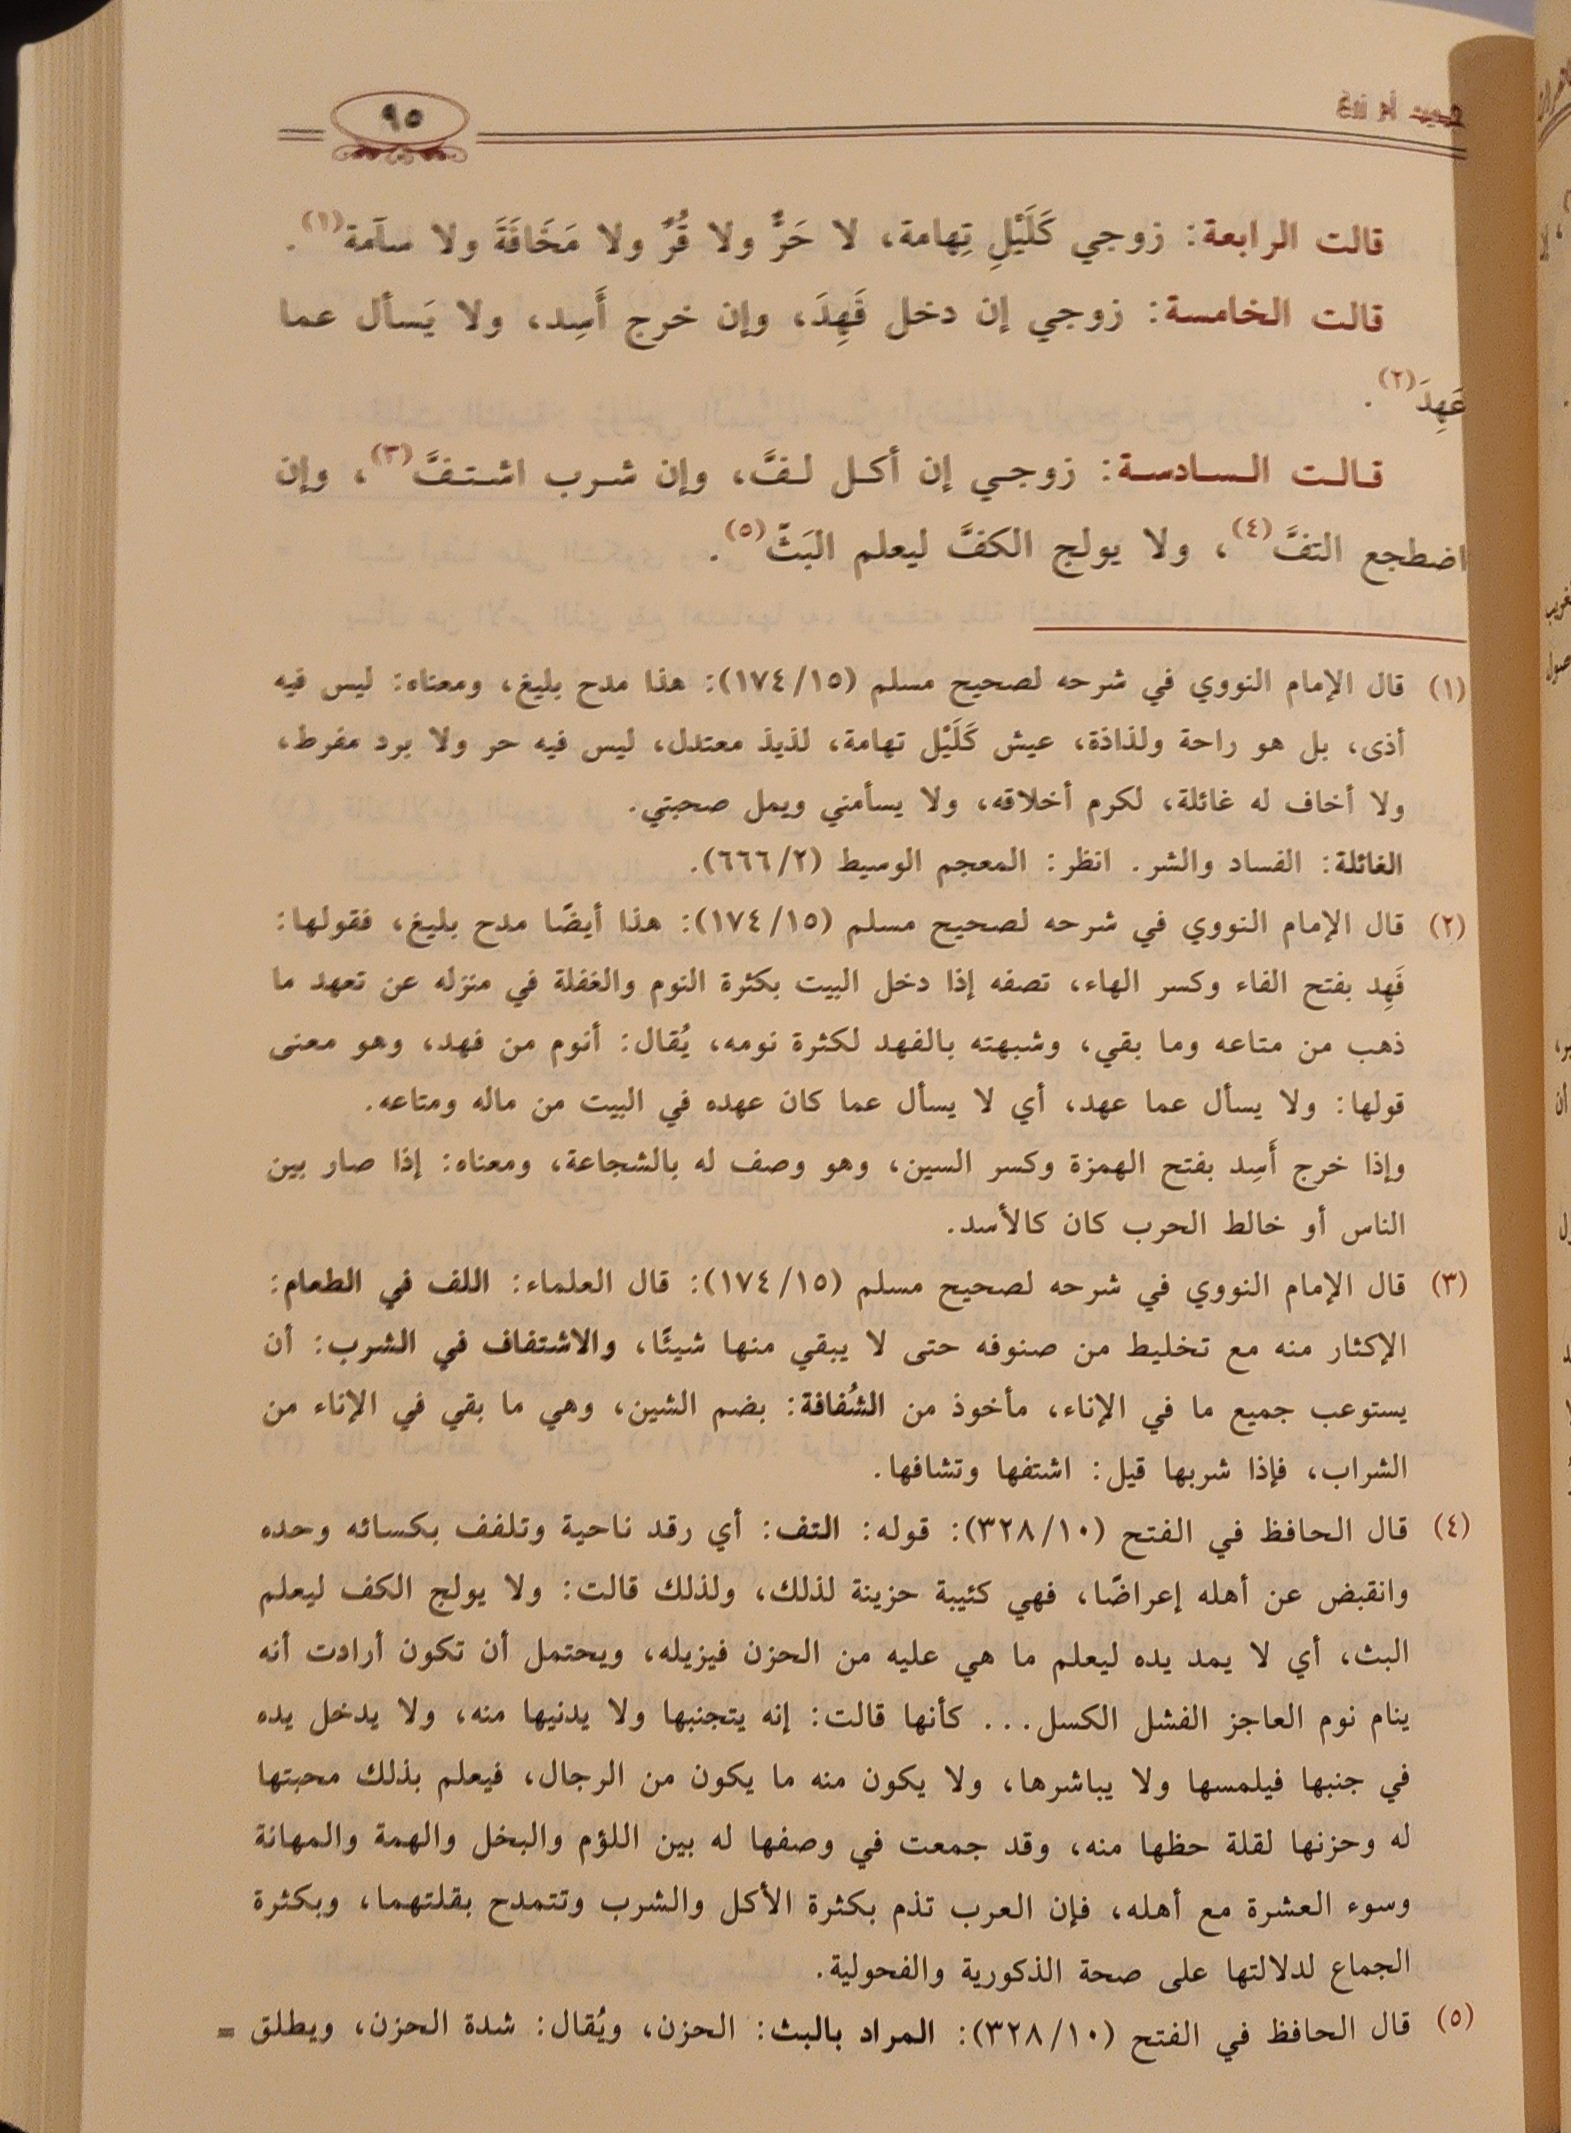 حديث أم زرع
٩٥
قالت الرابعة: زوجي كَلَيْلِ تِهامة، لا حَرٌّ ولا قُرٌّ ولا مَخَافَةَ ولا سآمة(١).
قالت الخامسة: زوجي إن دخل فَهِدَ، وإن خرج أَسِد، ولا يَسأل عما
عَهِدَ(٢).
قالت السادسة: زوجي إن أكل لفَّ، وإن شرب اشتفَّ(٣)، وإن
اضطجع التفَّ(٤)، ولا يولج الكفَّ ليعلم البَثّ(٥).
(١) قال الإمام النووي في شرحه لصحيح مسلم (١٧٤/١٥): هذا مدح بليغ، ومعناه: ليس فيه
أذى، بل هو راحة ولذاذة، عيش كَلَيْل تهامة، لذيذ معتدل، ليس فيه حر ولا برد مفرط،
ولا أخاف له غائلة، لكرم أخلاقه، ولا يسأمني ويمل صحبتي.
الغائلة: الفساد والشر. انظر: المعجم الوسيط (٦٦٦/٢).
(٢) قال الإمام النووي في شرحه لصحيح مسلم (١٧٤/١٥): هذا أيضًا مدح بليغ، فقولها:
فَهِد بفتح الفاء وكسر الهاء، تصفه إذا دخل البيت بكثرة النوم والغفلة في منزله عن تعهد ما
ذهب من متاعه وما بقي، وشبهته بالفهد لكثرة نومه، يُقال: أنوم من فهد، وهو معنى
قولها: ولا يسأل عما عهد، أي لا يسأل عما كان عهده في البيت من ماله ومتاعه.
وإذا خرج أَسِد بفتح الهمزة وكسر السين، وهو وصف له بالشجاعة، ومعناه: إذا صار بين
الناس أو خالط الحرب كان كالأسد.
(٣) قال الإمام النووي في شرحه لصحيح مسلم (١٧٤/١٥): قال العلماء: اللف في الطعام:
الإكثار منه مع تخليط من صنوفه حتى لا يبقي منها شيئًا، والاشتفاف في الشرب: أن
يستوعب جميع ما في الإناء، مأخوذ من الشُفافة: بضم الشين، وهي ما بقي في الإناء من
الشراب، فإذا شربها قيل: اشتفها وتشافها.
(٤) قال الحافظ في الفتح (٣٢٨/١٠): قوله: التف: أي رقد ناحية وتلفف بكسائه وحده
وانقبض عن أهله إعراضًا، فهي كئيبة حزينة لذلك، ولذلك قالت: ولا يولج الكف ليعلم
البث، أي لا يمد يده ليعلم ما هي عليه من الحزن فيزيله، ويحتمل أن تكون أرادت أنه
ينام نوم العاجز الفشل الكسل... كأنها قالت: إنه يتجنبها ولا يدنيها منه، ولا يدخل يده
في جنبها فيلمسها ولا يباشرها، ولا يكون منه ما يكون من الرجال، فيعلم بذلك محبتها
له وحزنها لقلة حظها منه، وقد جمعت في وصفها له بين اللؤم والبخل والهمة والمهانة
وسوء العشرة مع أهله، فإن العرب تذم بكثرة الأكل والشرب وتتمدح بقلتهما، وبكثرة
الجماع لدلالتها على صحة الذكورية والفحولية.
(٥) قال الحافظ في الفتح (٣٢٨/١٠): المراد بالبث: الحزن، ويُقال: شدة الحزن، ويطلق =